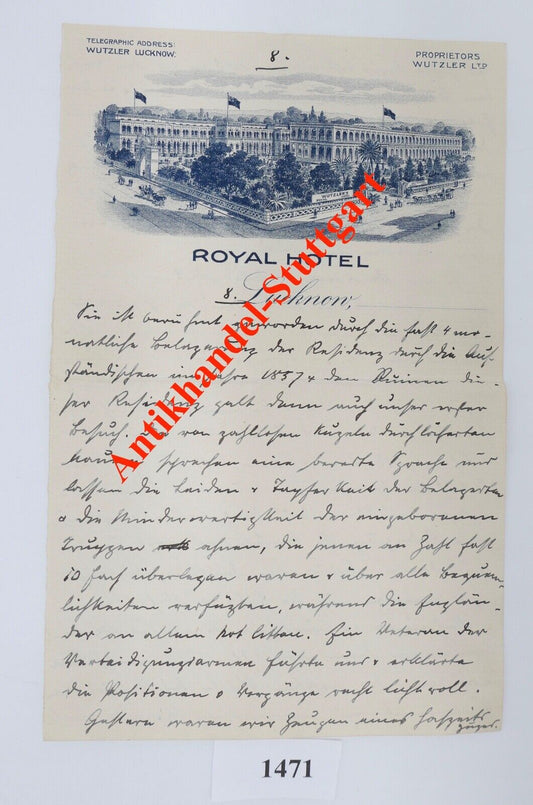 TELEGRAPHIC ADDRESS:
WUTZLER LUCKNOW.
8.
PROPRIETORS
WUTZLER LTD
WUTZLER'S
ROYAL HOTEL
8. Lucknow,
Sie ist berühmt geworden durch die fast 4 mo-
natliche Belagerung der Residenz durch die Auf-
ständischen im Jahre 1857 & den Ruinen die-
ser Residenz galt denn auch unser erster
Besuch. Die von zahllosen Kugeln durchlöcherten
sprechen eine beredte Sprache und
lassen die Leiden & Tapferkeit der Belagerten
& die Minderwertigkeit der eingeborenen
Truppen ahnen, die jenen an Zahl fast
10 fach überlegen waren & über alle Bequem-
lichkeiten verfügten, während die Englän-
der an allem Not litten. Ein Veteran der
Verteidigungsarmee führte uns & erklärte
die Positionen & Vorgänge recht lichtvoll.
Gestern waren wir Zeugen eines Hochzeits
zuges.
Antikhandel-Stuttgart
1471